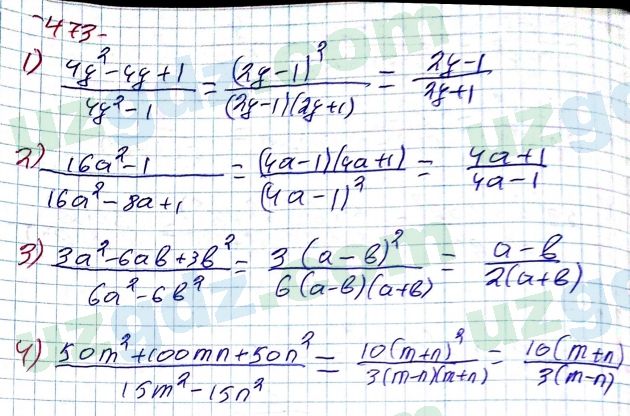 -473-
1) (4y² - 4y + 1)/(4y² - 1) = (2y-1)²/((2y-1)(2y+1)) = (2y-1)/(2y+1)
2) (16a² - 1)/(16a² - 8a + 1) = ((4a-1)(4a+1))/(4a-1)² = (4a+1)/(4a-1)
3) (3a² - 6ab + 3b²)/(6a² - 6b²) = 3(a-b)²/(6(a-b)(a+b)) = (a-b)/(2(a+b))
4) (50m² + 100mn + 50n²)/(15m² - 15n²) = 10(m+n)²/(3(m-n)(m+n)) = 10(m+n)/(3(m-n))